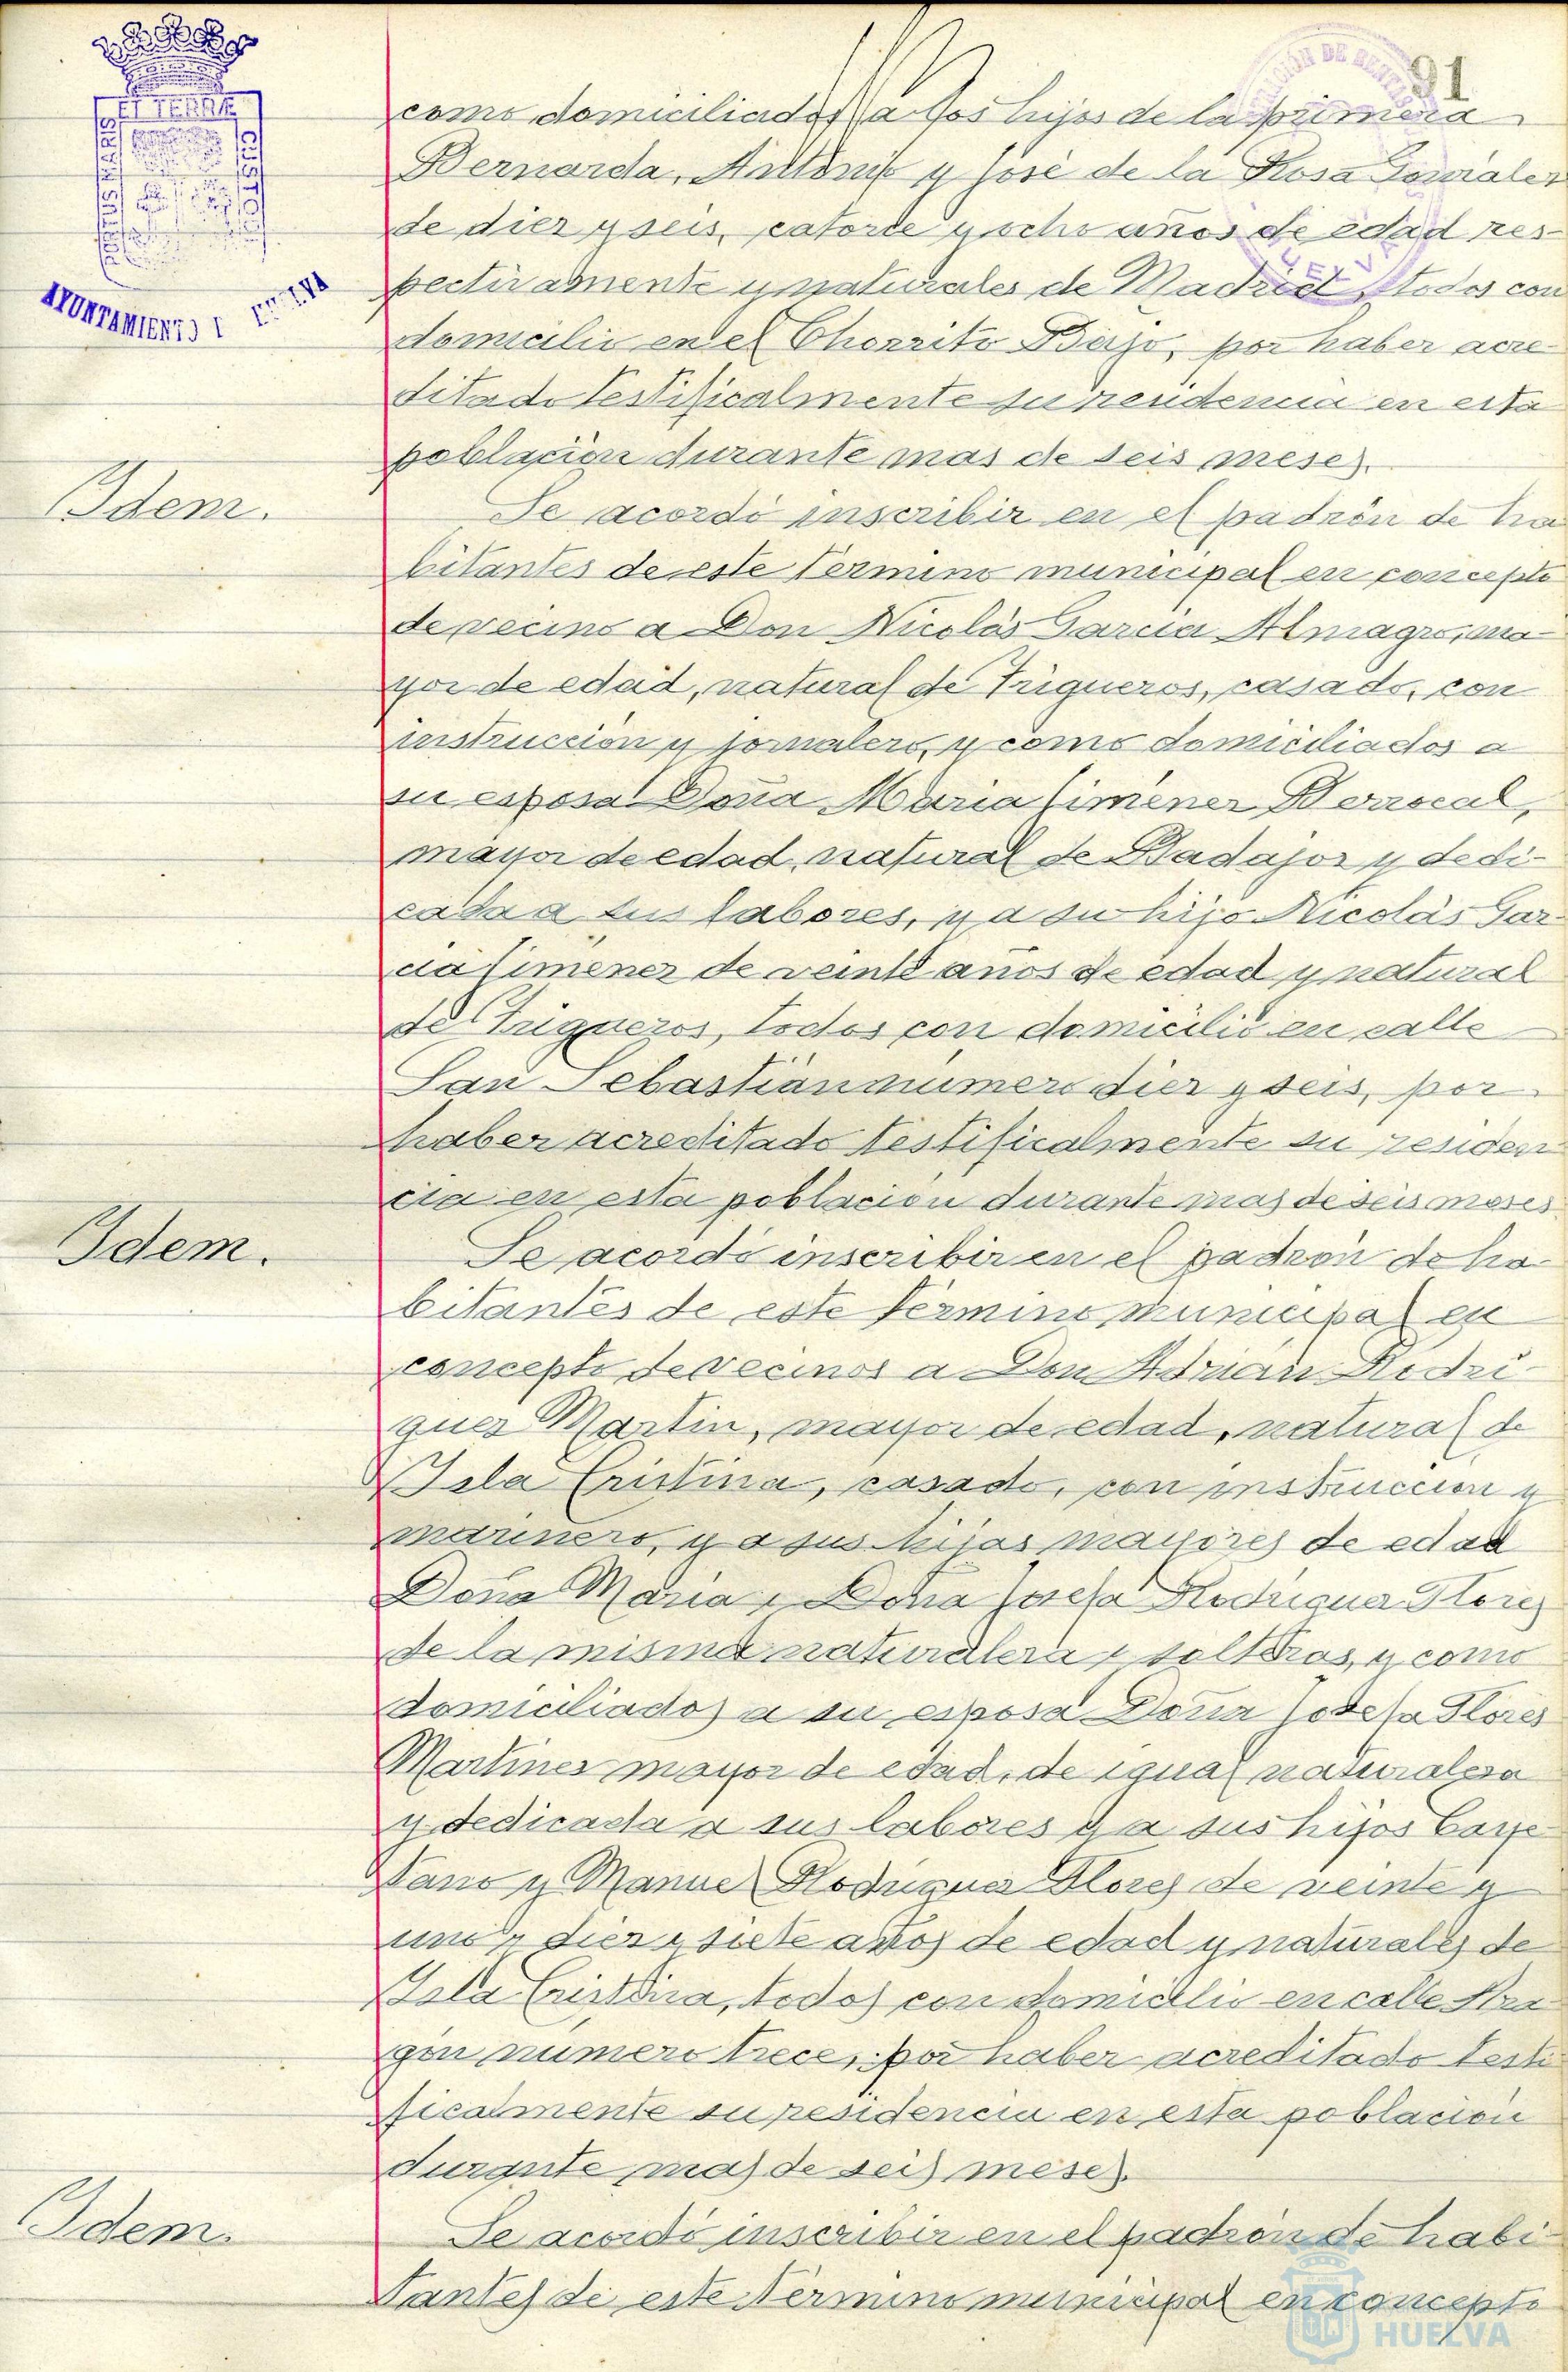 91
ET TERRÆ
AYUNTAMIENTO
HUELVA
como domiciliados a los hijos de la primera
Bernarda, Antonio y José de la Rosa Gonzalez
de diez y seis, catorce y ocho años de edad res-
pectivamente y naturales de Madrid, todos con
domicilio en el Chorrito Bajo, por haber acre
ditado testificalmente su residencia en esta
poblacion durante mas de seis meses.
Idem.
Se acordó inscribir en el padrón de ha
bitantes de este término municipal en concepto
de vecino a Don Nicolás Garcia Almagro, ma-
yor de edad, natural de Trigueros, casado, con
instrucción y jornalero, y como domiciliados a
su esposa Doña Maria Jiménez Berrocal,
mayor de edad, natural de Badajoz y dedi-
cada a sus labores, y a su hijo Nicolás Gar-
cia Jimenez de veinte años de edad y natural
de Trigueros, todos con domicilio en calle
San Sebastián número diez y seis, por
haber acreditado testificalmente su residen
cia en esta poblacion durante mas de seis meses
Idem.
Se acordó inscribir en el padrón de ha
bitantes de este término municipal en
concepto de vecinos a Don Adrián Rodri-
guez Martin, mayor de edad, natural de
Isla Cristina, casado, con instruccion y
marinero, y a sus hijas mayores de edad
Doña Maria y Doña Josefa Rodriguez Flores
de la misma naturaleza y solteras, y como
domiciliados a su esposa Doña Josefa Flores
Martinez mayor de edad, de igual naturaleza
y dedicada a sus labores y a sus hijos Caye
tano y Manuel Rodriguez Flores de veinte y
uno y diez y siete años de edad y naturales de
Isla Cristina, todos con domicilio en calle Ara
gón número trece, por haber acreditado testi
ficalmente su residencia en esta población
durante mas de seis meses.
Idem.
Se acordó inscribir en el padrón de habi-
tantes de este término municipal en concepto
HUELVA